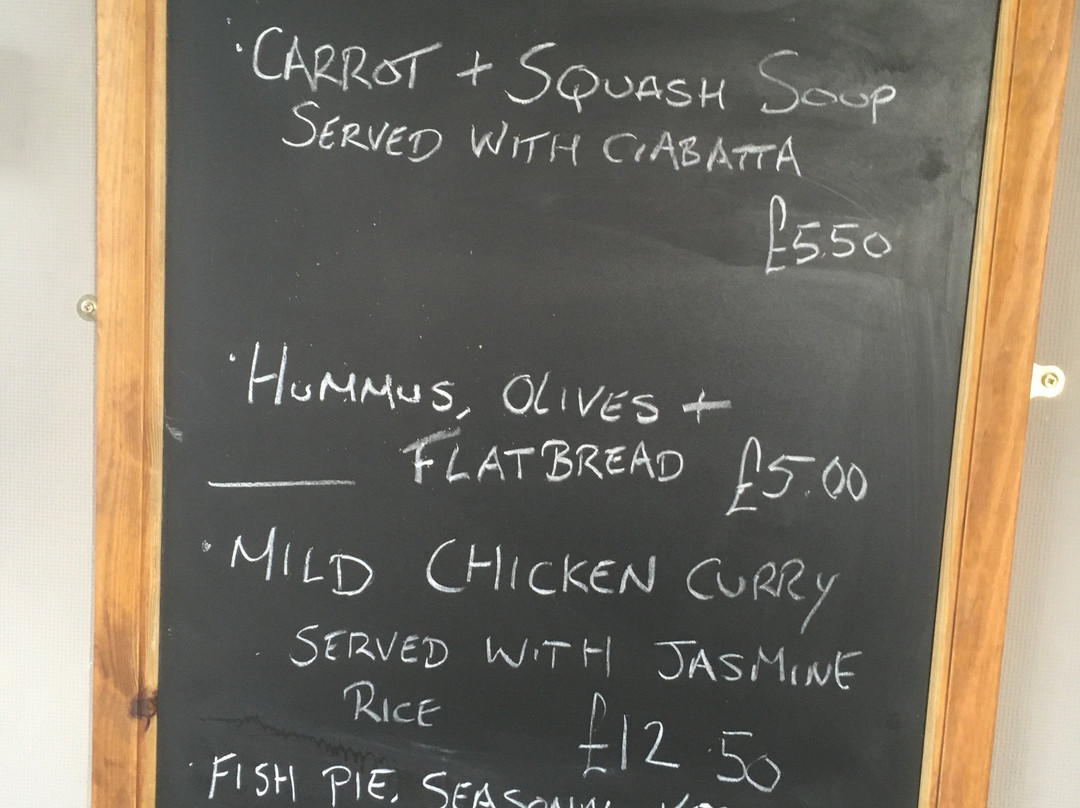 · CARROT + SQUASH SOUP
SERVED WITH CIABATTA
£5.50
· HUMMUS, OLIVES +
FLATBREAD £5.00
· MILD CHICKEN CURRY
SERVED WITH JASMINE
RICE £12.50
· FISH PIE, SEASONAL